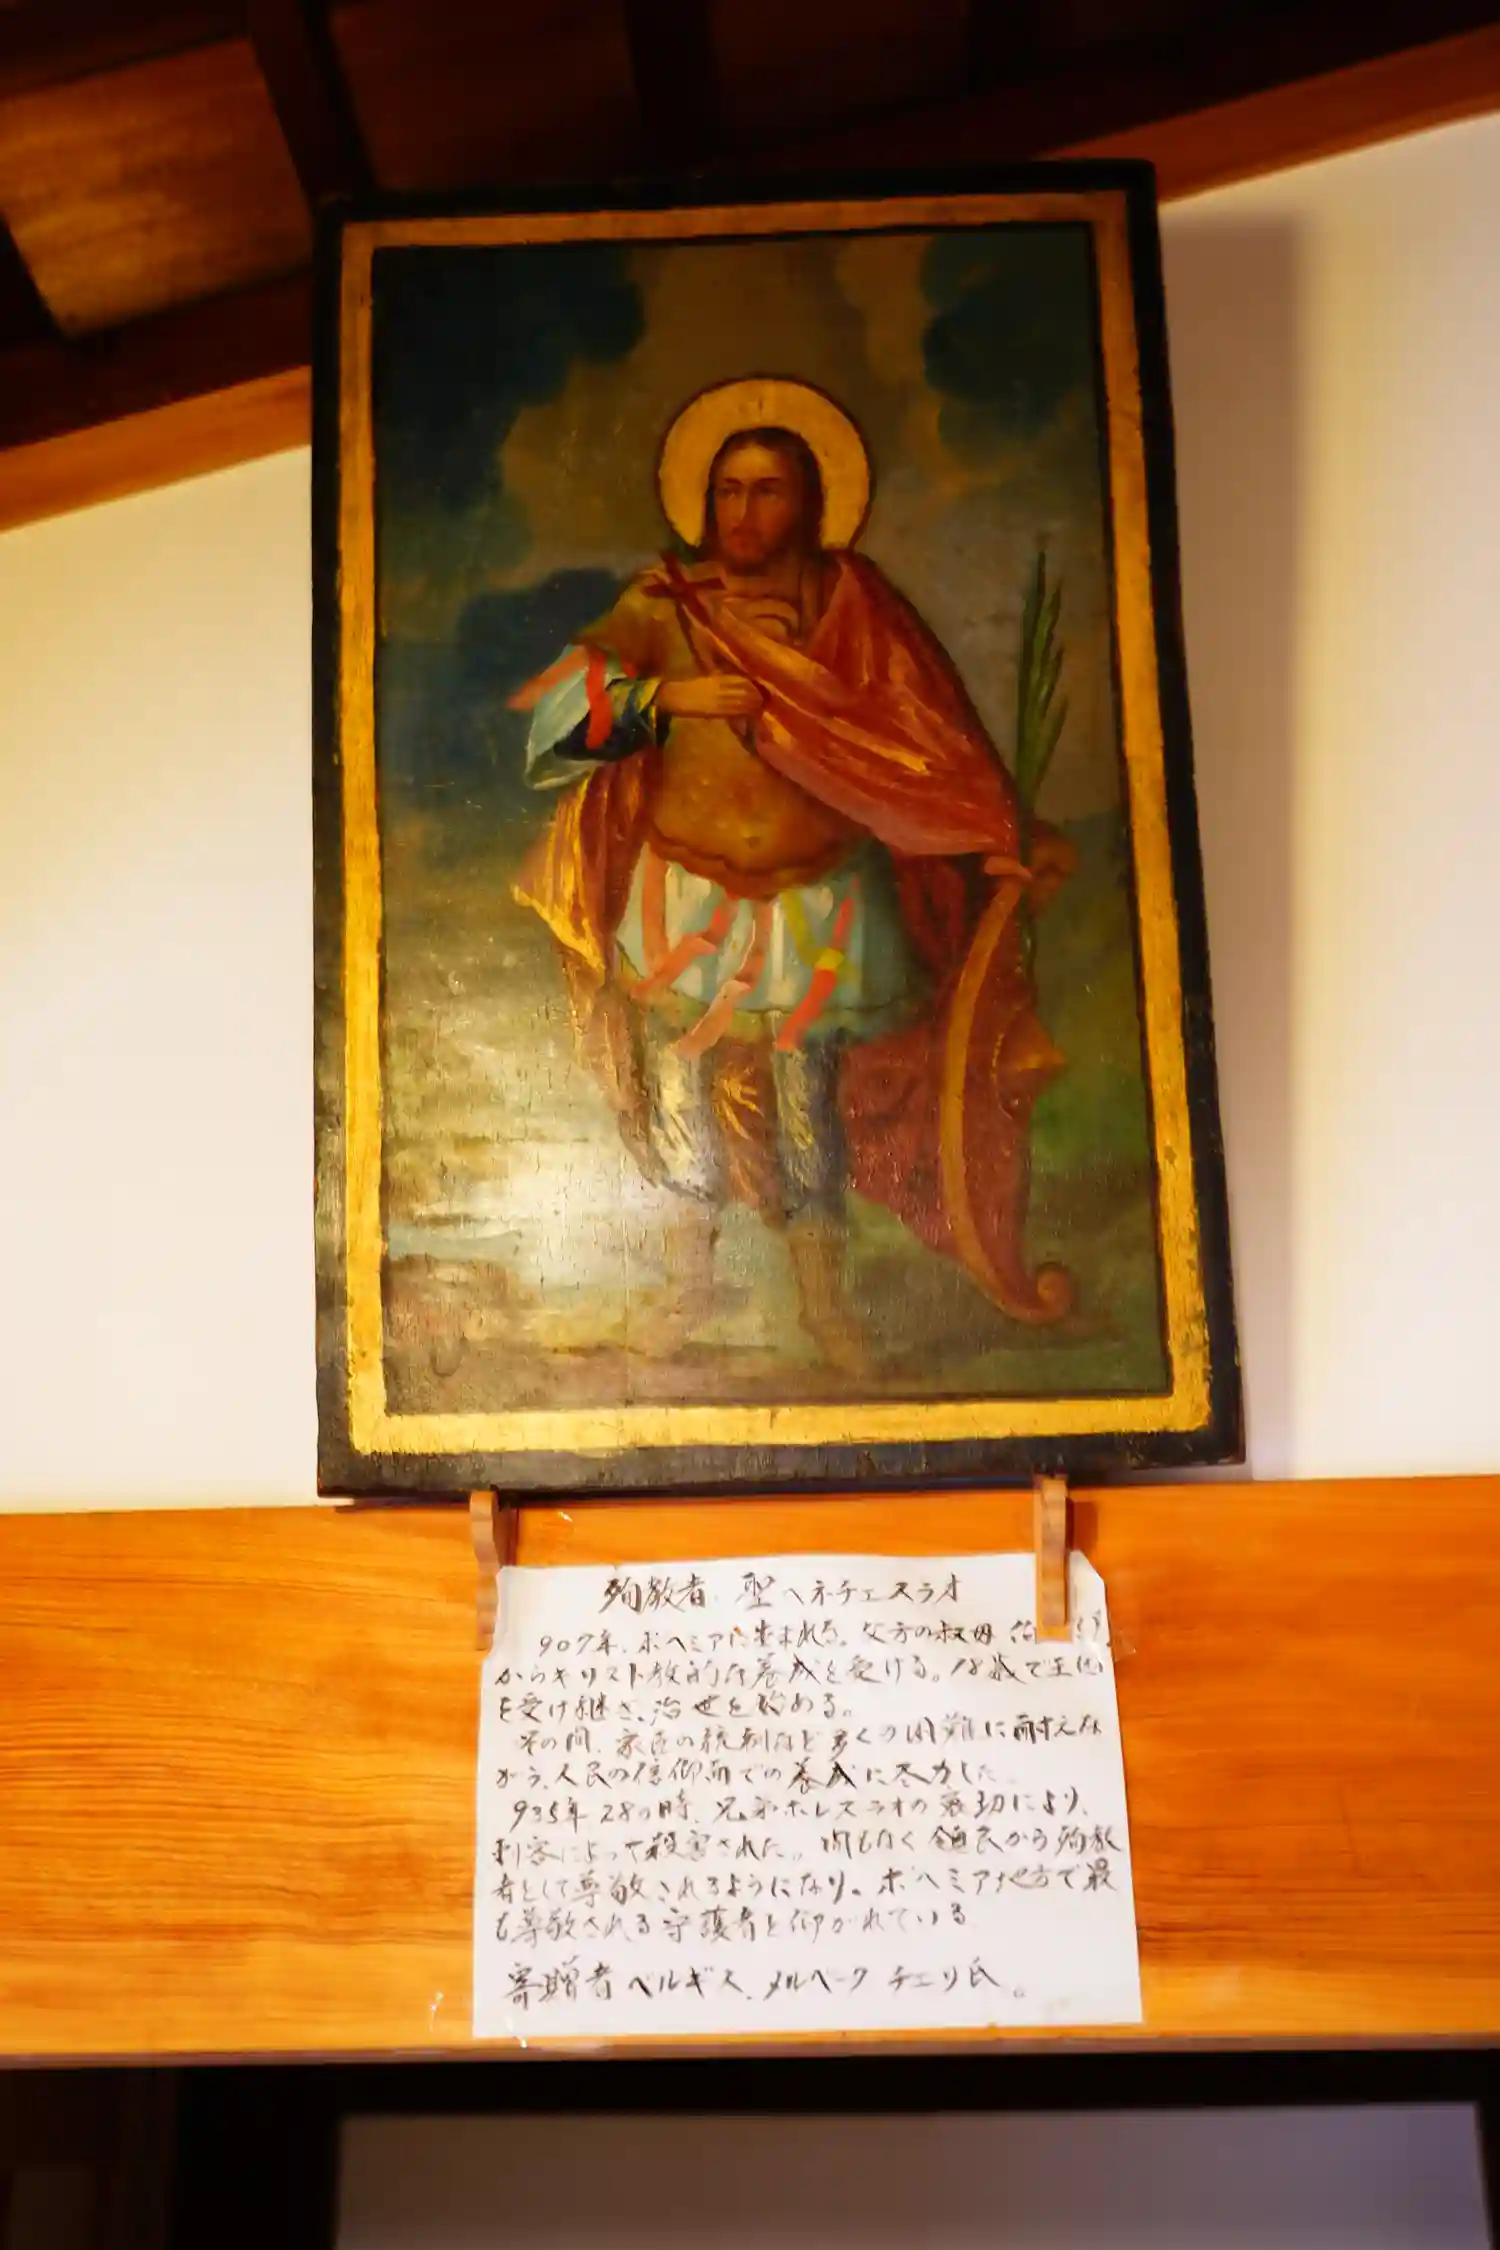 殉教者 聖ヘネチェスラオ
907年、ボヘミアに生まれる。父方の叔母
からキリスト教的な養成を受ける。18歳で王位
を受け継ぎ、治世を始める。
その間、家臣の統制など多くの困難に耐えな
がら、人民の信仰面での養成に尽力した。
935年28の時、兄弟ボレスラオの策動により、
刺客によって殺害された。間もなく領民から殉教
者として尊敬されるようになり。ボヘミア地方で最
も尊敬される守護者と仰がれている
寄贈者 ベルギス、メルベーク チェリ氏。